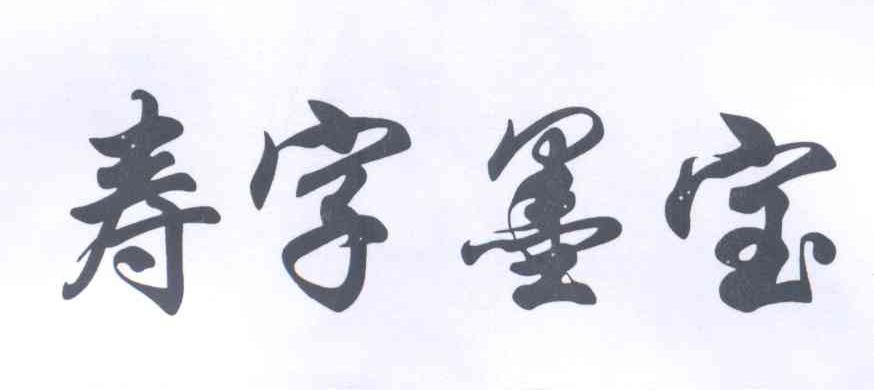 寿字墨宝